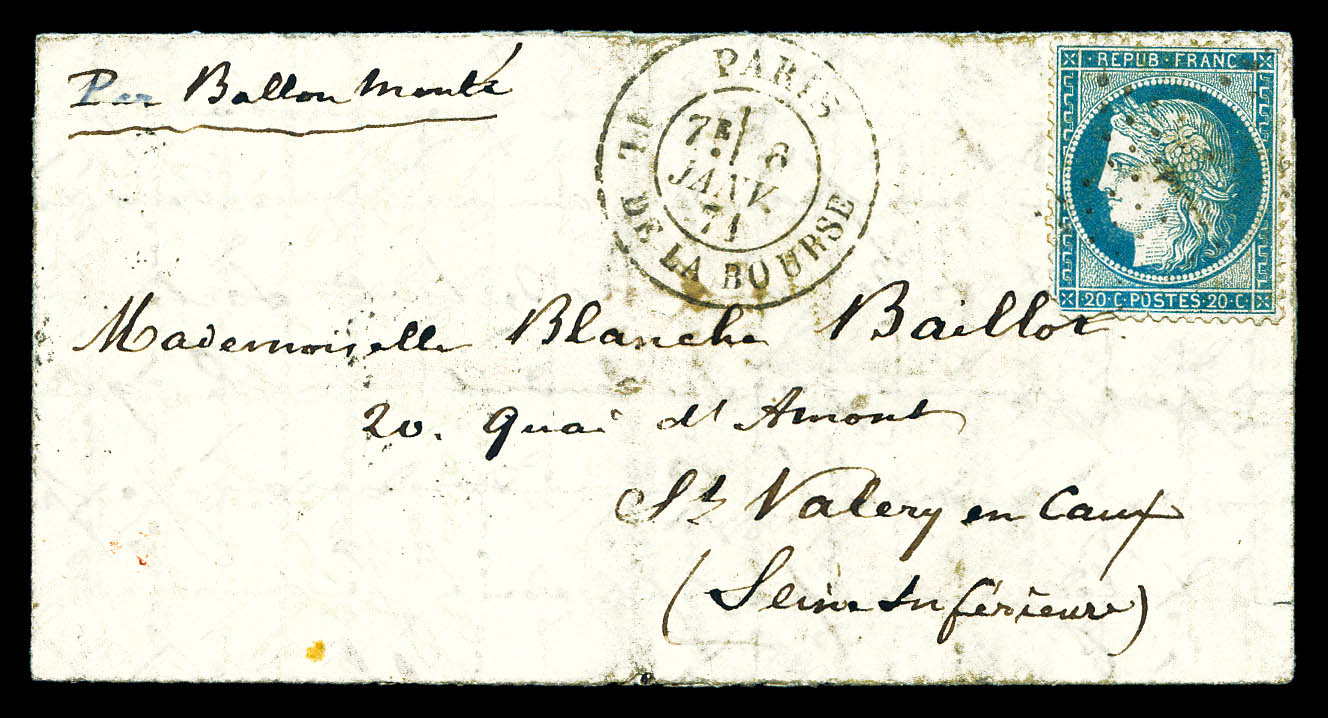 Par Ballon Monté
PARIS
PL. DE LA BOURSE
7E 6
JANV.
71
REPUB FRANC
20·C·POSTES·20·C
Mademoiselle Blanche Baillot
20. Quai d'Amont
St Valery en Caux
(Seine Inférieure)